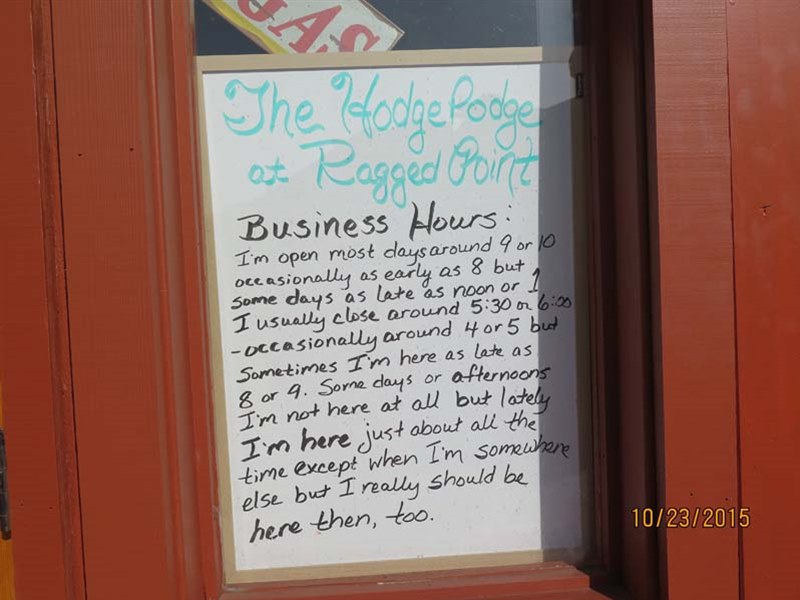 GAS
The Hodge Podge
at Ragged Point
Business Hours:
I'm open most days around 9 or 10
occasionally as early as 8 but
some days as late as noon or 1
I usually close around 5:30 or 6:00
-occasionally around 4 or 5 but
Sometimes I'm here as late as
8 or 9. Some days or afternoons
I'm not here at all but lately
I'm here just about all the
time except when I'm somewhere
else but I really should be
here then, too.
10/23/2015